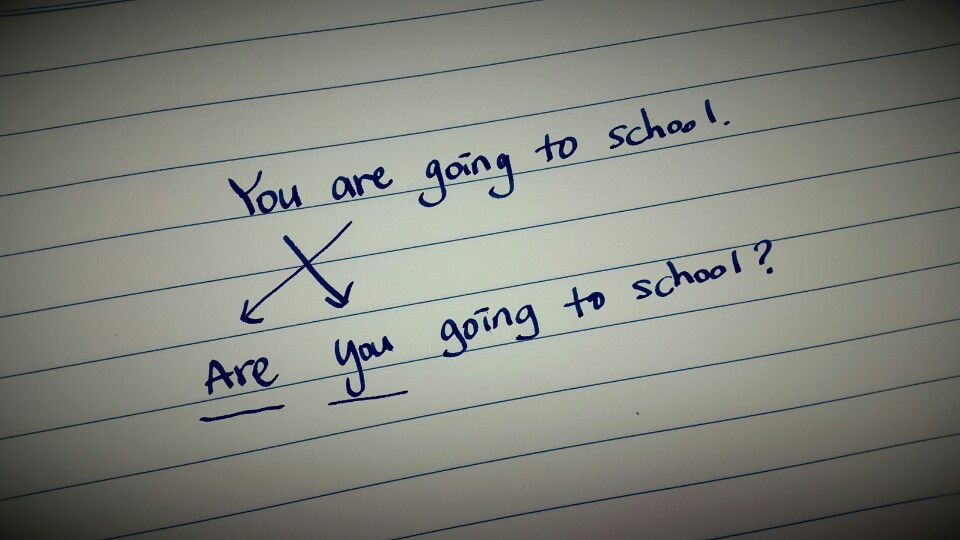 You are going to school.
Are you going to school?